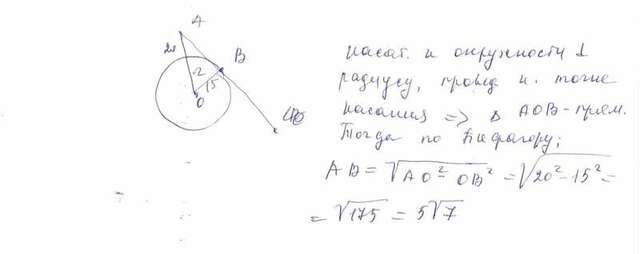 A
20
B
r
15
O
касат. к окружности ⊥
радиусу, провед к. точке
касания => Δ AOB - прям.
Тогда по Пифагору:
AB = √(AO² - OB²) = √(20² - 15²) =
= √175 = 5√7